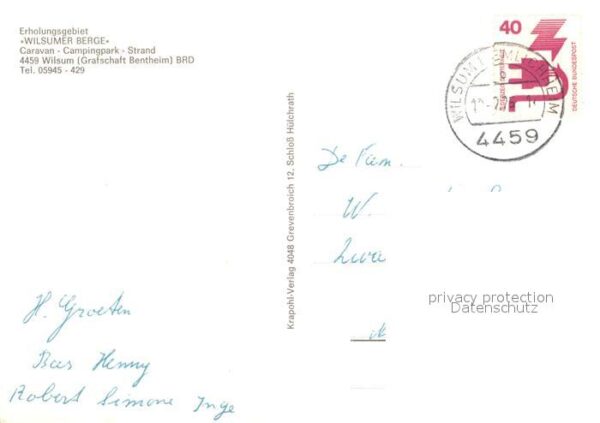 Erholungsgebiet
»WILSUMER BERGE«
Caravan - Campingpark - Strand
4459 Wilsum (Grafschaft Bentheim) BRD
Tel. 05945 - 429
Krapohl-Verlag 4048 Grevenbroich 12, Schloß Hülchrath
40
DEUTSCHE BUNDESPOST
WILSUM
4459
De Fam.
W.
privacy protection
Datenschutz
H. Groeten
Bas Henny
Robert Simone Inge